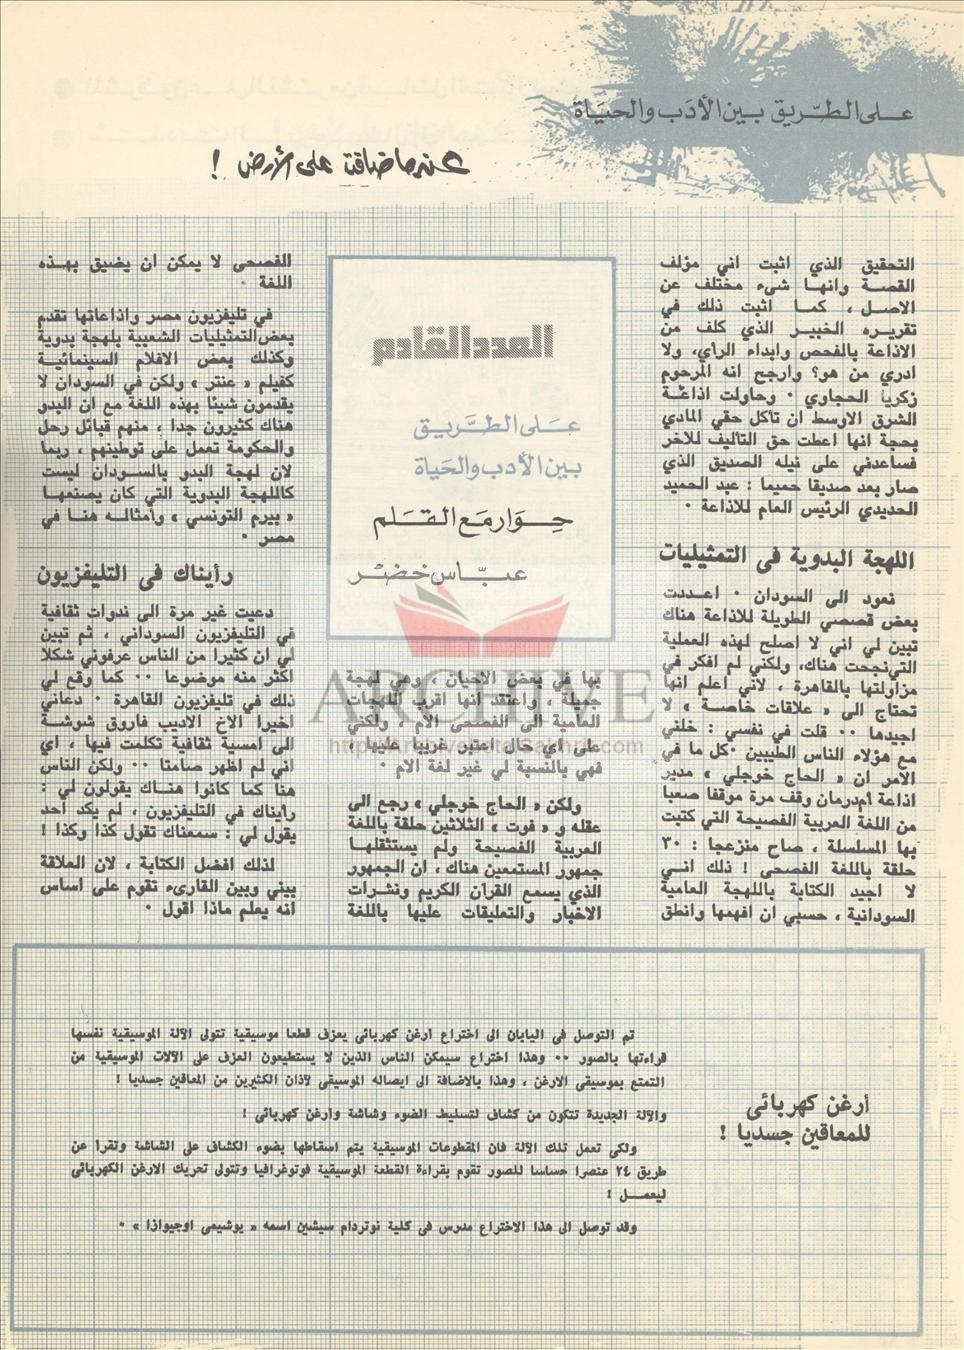 على الطريق بين الأدب والحياة
عندما ضاقت على الأرض !
التحقيق الذي اثبت اني مؤلف
القصة وانها شيء مختلف عن
الاصل ، كما اثبت ذلك في
تقريره الخبير الذي كلف من
الاذاعة بالفحص وابداء الرأي، ولا
ادري من هو؟ وارجح انه المرحوم
زكريا الحجاوي ٠ وحاولت اذاعة
الشرق الاوسط ان تأكل حقي المادي
بحجة انها اعطت حق التأليف للآخر
فساعدني على نيله الصديق الذي
صار بعد صديقا حميما : عبد الحميد
الحديدي الرئيس العام للاذاعة ٠
اللهجة البدوية في التمثيليات
نعود الى السودان ٠ اعددت
بعض قصصي الطويلة للاذاعة هناك
تبين لي اني لا اصلح لهذه العملية
التي نجحت هناك، ولكني لم افكر في
مزاولتها بالقاهرة ، لاني اعلم انها
تحتاج الى « علاقات خاصة » لا
اجيدها ٠٠ قلت في نفسي : خلني
مع هؤلاء الناس الطيبين ٠ كل ما في
الامر ان « الحاج خوجلي » مدير
اذاعة أمدرمان وقف مرة موقفا صعبا
من اللغة العربية الفصيحة التي كتبت
بها المسلسلة ، صاح منزعجا : ٣٠
حلقة باللغة الفصحى ! ذلك انني
لا اجيد الكتابة باللهجة العامية
السودانية ، حسبي ان افهمها وانطق
العدد القادم
على الطريق
بين الأدب والحياة
حوار مع القلم
عباس خضر
بها في بعض الاحيان ، وهي لهجة
جميلة ، واعتقد انها اقرب اللهجات
العامية الى الفصحى الأم ٠ ولكني
على اي حال اعتبر غريبا عليها ٠
فهي بالنسبة لي غير لغة الأم ٠
ولكن « الحاج خوجلي » رجع الى
عقله و « فوت » الثلاثين حلقة باللغة
العربية الفصيحة ولم يستثقلها
جمهور المستمعين هناك ، ان الجمهور
الذي يسمع القرآن الكريم ونشرات
الاخبار والتعليقات عليها باللغة
الفصحى لا يمكن ان يضيق بهذه
اللغة ٠
في تليفزيون مصر واذاعاتها تقدم
بعض التمثيليات الشعبية بلهجة بدوية
وكذلك بعض الافلام السينمائية
كفيلم « عنتر » ولكن في السودان لا
يقدمون شيئا بهذه اللغة مع ان البدو
هناك كثيرون جدا ، منهم قبائل رحل
والحكومة تعمل على توطينهم ، ربما
لان لهجة البدو بالسودان ليست
كاللهجة البدوية التي كان يصنعها
« بيرم التونسي » وأمثاله هنا في
مصر ٠
رأيناك في التليفزيون
دعيت غير مرة الى ندوات ثقافية
في التليفزيون السوداني ، ثم تبين
لي ان كثيرا من الناس عرفوني شكلا
اكثر منه موضوعا ٠٠ كما وقع لي
ذلك في تليفزيون القاهرة ٠ دعاني
اخيرا الاخ الاديب فاروق شوشة
الى امسية ثقافية تكلمت فيها ، اي
اني لم اظهر صامتا ٠٠ ولكن الناس
هنا كما كانوا هناك يقولون لي :
رأيناك في التليفزيون ، لم يكد احد
يقول لي : سمعناك تقول كذا وكذا !
لذلك افضل الكتابة ، لان العلاقة
بيني وبين القارىء تقوم على اساس
انه يعلم ماذا اقول ٠
ARCHIVE
http://Archivebeta.Sakhrit.com
أرغن كهربائى
للمعاقين جسديا !
تم التوصل فى اليابان الى اختراع أرغن كهربائى يعزف قطعا موسيقية تتولى الآلة الموسيقية نفسها
قراءتها بالصور ٠٠ وهذا اختراع سيمكن الناس الذين لا يستطيعون العزف على الآلات الموسيقية من
التمتع بموسيقى الارغن ، وهذا بالاضافة الى ايصاله الموسيقى لآذان الكثيرين من المعاقين جسديا !
والآلة الجديدة تتكون من كشاف لتسليط الضوء وشاشة وأرغن كهربائى !
ولكى تعمل تلك الآلة فان المقطوعات الموسيقية يتم اسقاطها بضوء الكشاف على الشاشة وتقرأ عن
طريق ٢٤ عنصرا حساسا للصور تقوم بقراءة القطعة الموسيقية فوتوغرافيا وتتولى تحريك الارغن الكهربائى
ليعمل !
وقد توصل الى هذا الاختراع مدرس فى كلية نوتردام سيشين اسمه « يوشيمى اوجيوازا » ٠